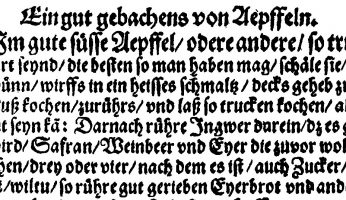 Ein gut gebachens von Aepffeln.
Im gute süsse Aepffel/ odere andere/ so tru
rt seynd/ die besten so man haben mag/ schäle sie/
ünn/ wirffs in ein heisses schmaltz/ decks geheb zu
uß kochen/ zurührs/ vnd laß so trucken kochen/ al
t seyn kã: Darnach rühre Ingwer darein/ dz es g
ird/ Safran/ Weinbeer vnd Eyer die zuvor wol
hen/ drey oder vier/ nach dem es ist/ auch Zucker/
/ wiltu/ so rühre gut gerieben Eyerbrot vnd and